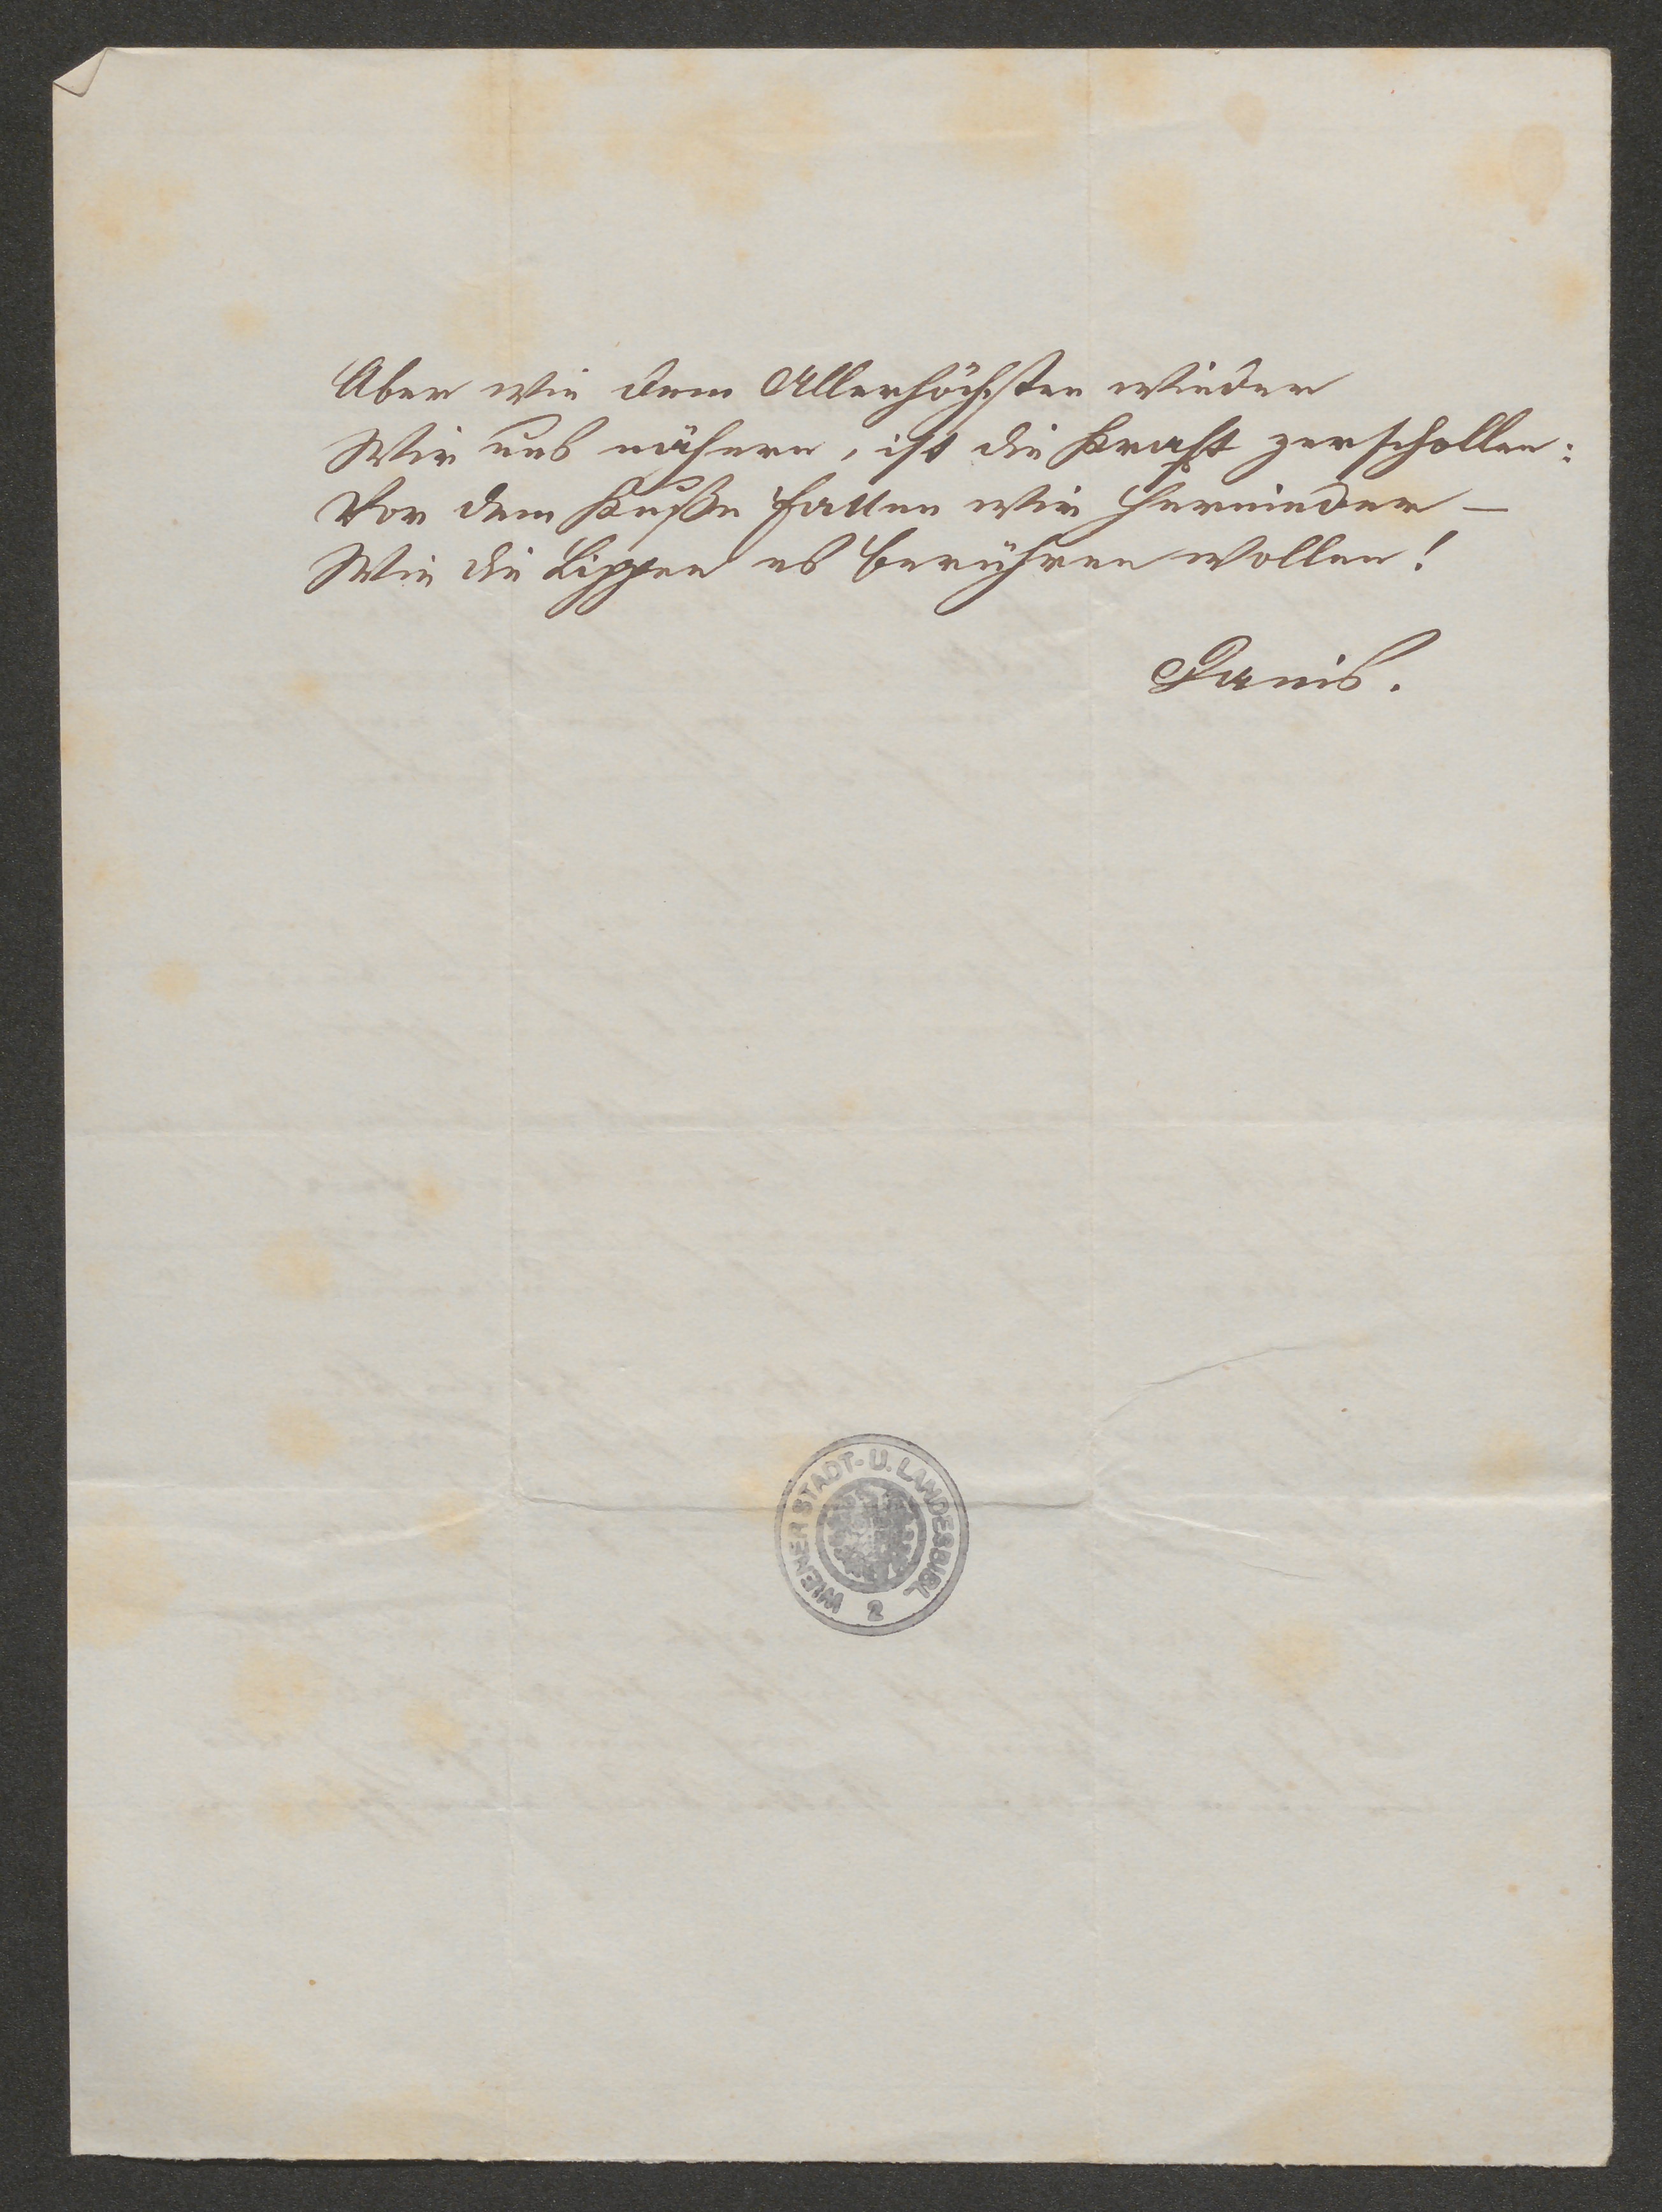 Aber wie dem Allerhöchsten wieder
Wir uns nähern, ist die Kraft zerschollen:
Vor dem Kuße fallen wir hernieder –
Wie die Lippen es berühren wollen!
Danis.
WIENER STADT- U. LANDESBIBL.
2